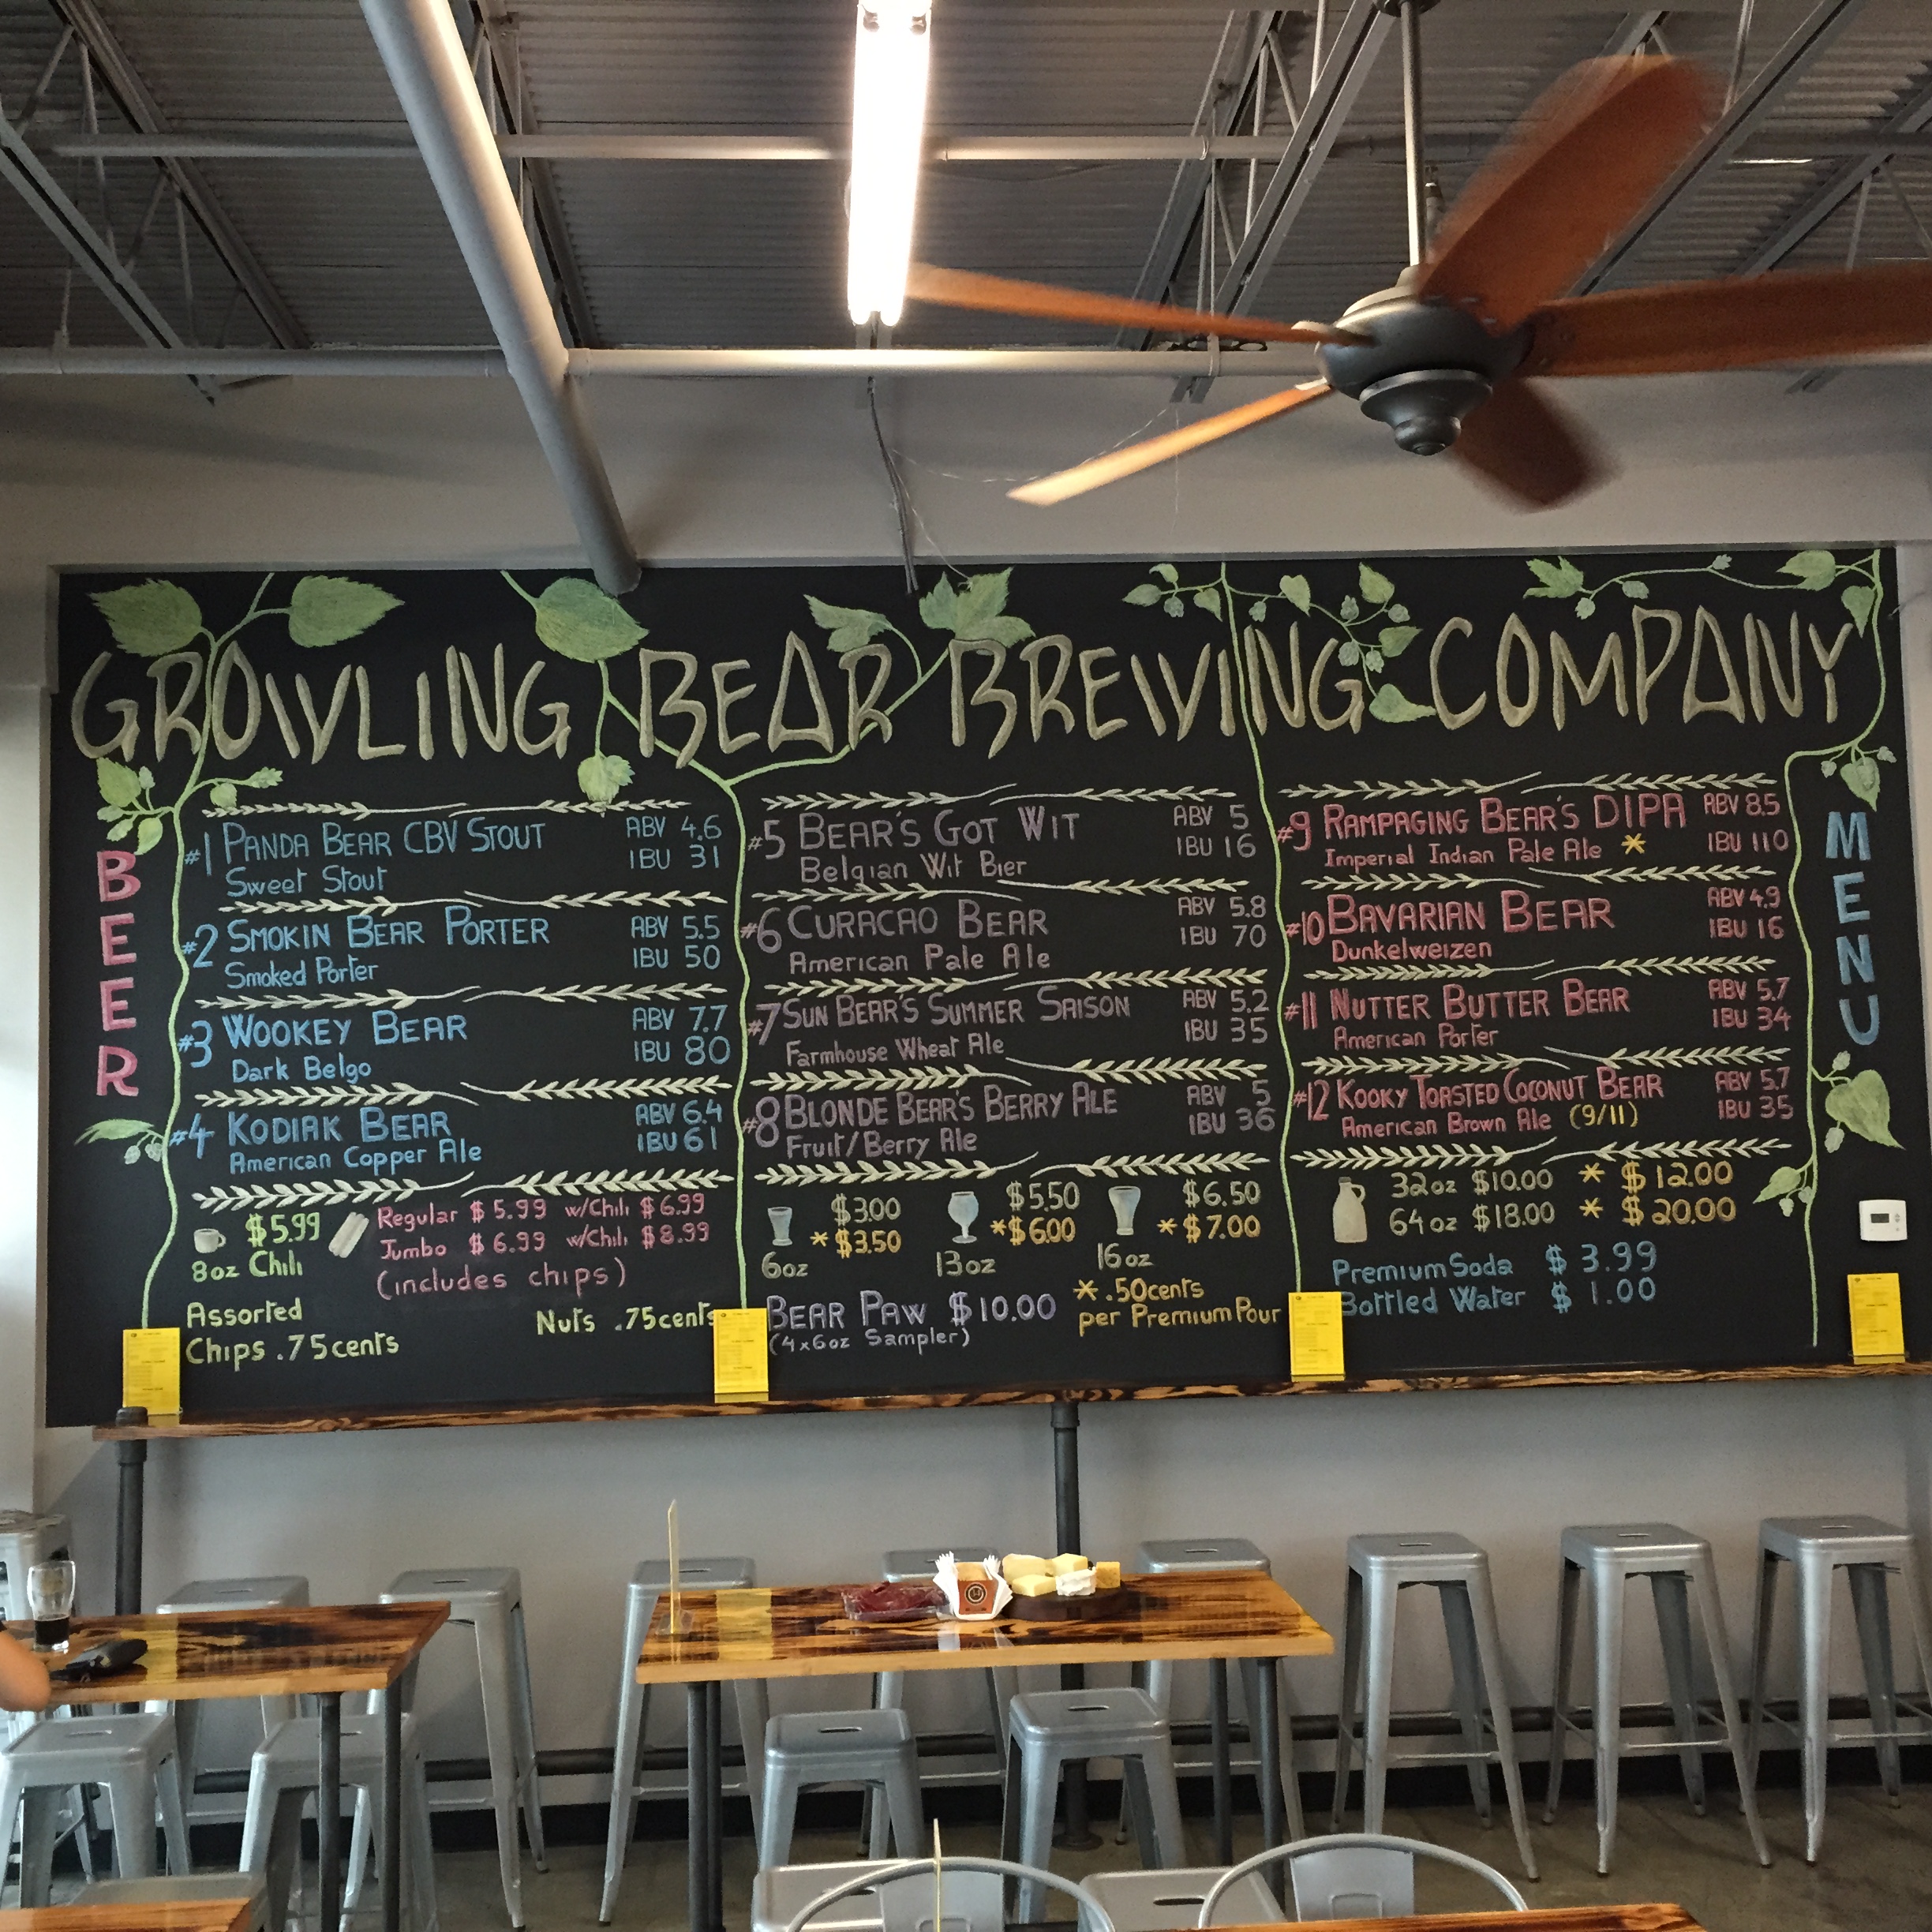 GROWLING BEAR BREWING COMPANY
BEER
#1 PANDA BEAR CBV STOUT ABV 4.6
Sweet Stout IBU 31
#2 SMOKIN BEAR PORTER ABV 5.5
Smoked Porter IBU 50
#3 WOOKEY BEAR ABV 7.7
Dark Belgo IBU 80
#4 KODIAK BEAR ABV 6.4
American Copper Ale IBU 61
$5.99
8oz Chili
Regular $5.99 w/Chili $6.99
Jumbo $6.99 w/Chili $8.99
(includes chips)
Assorted
Chips .75cents
Nuts .75cents
#5 BEAR'S GOT WIT ABV 5
Belgian Wit Bier IBU 16
#6 CURACAO BEAR ABV 5.8
American Pale Ale IBU 70
#7 SUN BEAR'S SUMMER SAISON ABV 5.2
Farmhouse Wheat Ale IBU 35
#8 BLONDE BEAR'S BERRY ALE ABV 5
Fruit/Berry Ale IBU 36
$3.00
* $3.50
6oz
$5.50
* $6.00
13oz
$6.50
* $7.00
16oz
BEAR PAW $10.00
(4x6oz Sampler)
* .50cents
per Premium Pour
#9 RAMPAGING BEAR'S DIPA ABV 8.5
Imperial Indian Pale Ale * IBU 110
#10 BAVARIAN BEAR ABV 4.9
Dunkelweizen IBU 16
#11 NUTTER BUTTER BEAR ABV 5.7
American Porter IBU 34
#12 KOOKY TOASTED COCONUT BEAR ABV 5.7
American Brown Ale (9/11) IBU 35
32oz $10.00 * $12.00
64oz $18.00 * $20.00
Premium Soda $3.99
Bottled Water $1.00
MENU